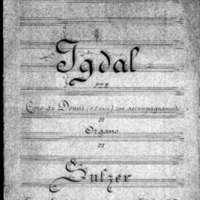 Igdal
per
Coro di Donne (o Uomini) con accompagnamento
di
Organo
di
Sulzer